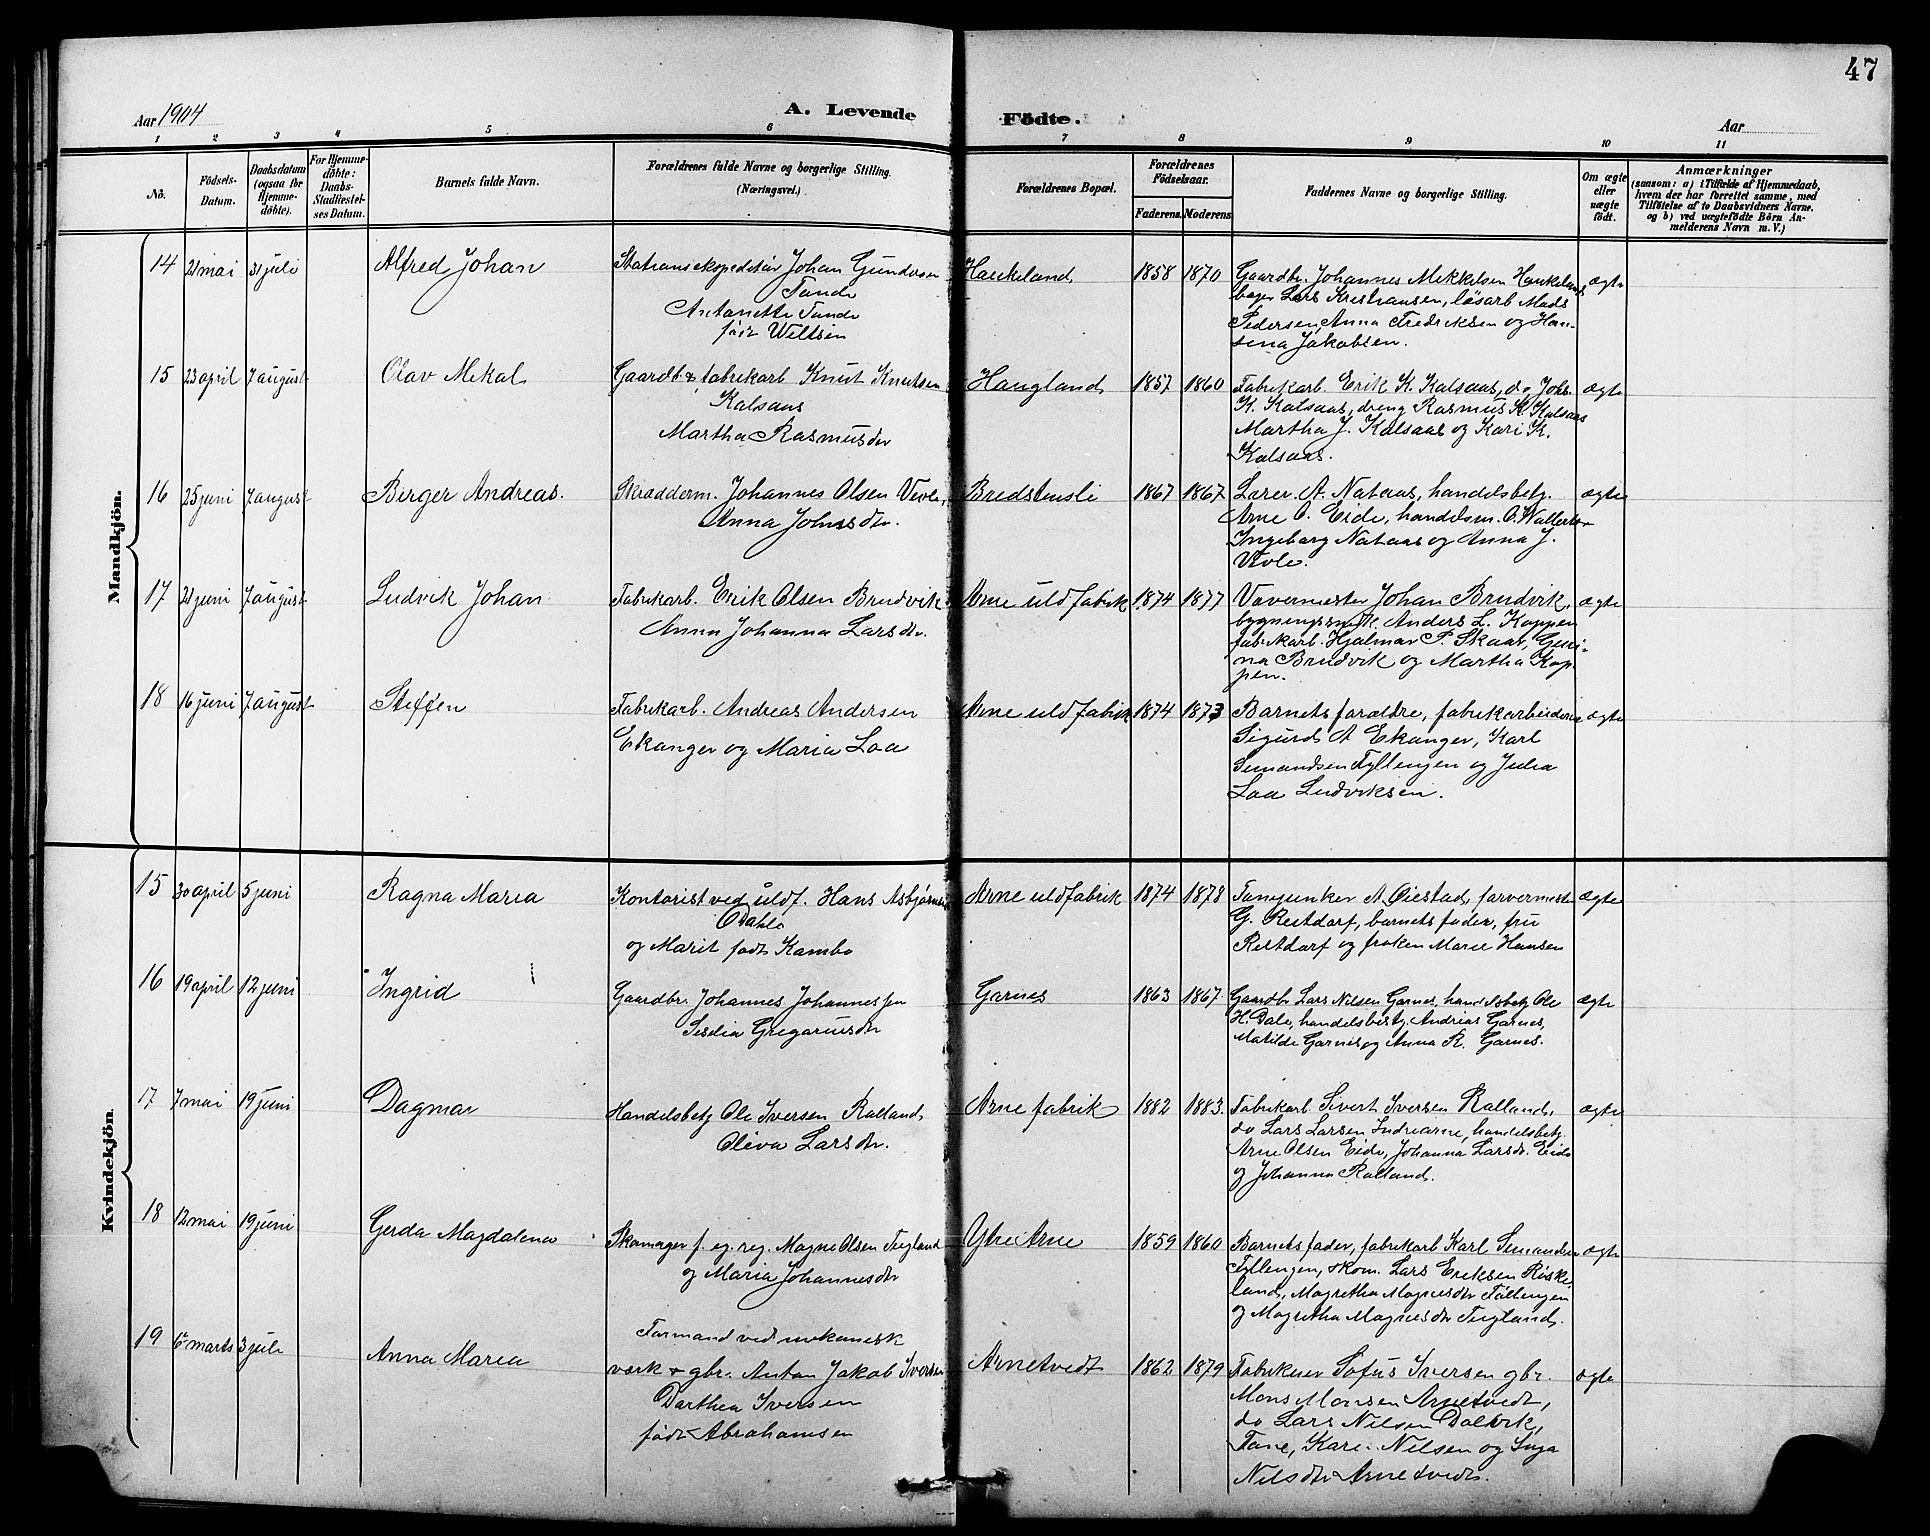 47
Aar 1904
A. Levende Födte.
Aar
1 2 3 4 5 6 7 8 9 10 11
No.
Födsels-Datum.
Daabsdatum (ogsaa for Hjemme-döbte).
For Hjemme-döbte: Daabs-Stadfæstel-ses Datum.
Barnets fulde Navn.
Forældrenes fulde Navne og borgerlige Stilling. (Næringsvei.)
Forældrenes Bopæl.
Forældrenes Födselsaar.
Faderens. Moderens.
Faddernes Navne og borgerlige Stilling.
Om ægte eller uægte födt.
Anmærkninger
(saasom: a) i Tilfælde af Hjemmedaab,
hvem der har forrettet samme, med
Tilföielse af to Daabsvidners Navne,
og b) ved uægtefödte Börn An-
melderens Navn m. V.)
Mandkjön.
14 21 mai 31 juli Alfred Johan
Johan Gundersen
Tande
Antonette Tande
Haukeland 1858 1870
Gaardbr. Johannes Mikkelsen Haukeland
Lars Kristiansen, løsarb Mads
Pedersen, Anna Fredriksen og Han-
sina Jakobsen.
ægte
15 23 april 7 august Olav Mikal
Gaardb & fabrikarb Knut Knutsen
Kalsaas
Martha Rasmusdtr
Haugland 1857 1860
Fabrikarb. Erik K. Kalsaas, do Johs.
K. Kalsaas, dreng Rasmus K. Kalsaas
Martha J. Kalsaas og Kari K.
Kalsaas.
ægte
16 25 juni 7 august Birger Andreas.
Skrædderm. Johannes Olsen Vevle,
Anna Johnsdtr.
Bredstensli 1867 1867
Lærer A. Nataas, handelsbetj.
Arne O. Eide, handelsm. O.
Ingeborg Nataas og Anna J.
Vevle.
ægte
17 21 juni 7 august Ludvik Johan
Fabrikarb. Erik Olsen Brudvik
Anna Johanna Larsdtr.
Arne uldfabrik 1874 1877
Vævermester Johan Brudvik,
bygningssnik. Anders L. Koppen
fabrikarb. Hjalmar P. Skaar, Guri-
na Brudvik og Martha Kop-
pen.
ægte
18 16 juni 7 august Steffen
Fabrikarb. Andreas Andersen
Ekanger og Maria Loa
Arne uldfabrik 1874 1873
Barnets forældre, fabrikarbeiderne
Sigurd A Ekanger, Karl
Simundsen Fyllingen og Julia
Loa Ludviksen.
ægte
Kvindekjön.
15 30 april 5 juni Ragna Maria
Kontorist ved uldf. Hans Asbjørnsen
Dahle
og Marit født Kambo
Arne uldfabrik 1874 1878
A. Øiestad, farvermester
G. Restdorf, barnets fader, fru
Restdorf og frøken Marie Hansen
ægte
16 19 april 12 juni Ingrid
Gaardbr. Johannes Johannessen
Seselia Gregoriusdtr
Garnes 1863 1867
Gaardbr Lars Nilsen Garnes, handelsbetj. Ole
H. Dale, handelsbestj. Andrias Garnes,
Matilde Garnes og Anna R. Garnes.
ægte
17 7 mai 19 juni Dagmar
Handelsbetj Ole Iversen Ralland,
Oliva Larsdtr.
Arne fabrik 1882 1883.
Fabrikarb. Sivert Iversen Ralland,
do Lars Larsen Indrearne, handelsbetj.
Arne Olsen Eide, Johanna Larsdtr. Eide
og Johanna Ralland.
ægte
18 12 mai 19 juni Gerda Magdalena
Skomager f. eg. reg. Magne Olsen Teigland
og Maria Johannesdtr
Ytre Arne 1859 1860
Barnets fader, fabrikarb Karl Simundsen
Fyllingen, skom. Lars Eriksen Røske
land, Magretha Magnesdtr Fyllingen
og Magretha Magnesdtr Teigland.
ægte
19 6 marts 3 juli Anna Maria
Formand ved mekanisk
værk & gbr. Anton Jakob Iversen
Dorthea Iversen
født Abrahamsen
Arnetvedt 1862 1879
Fabrikeier Sofus Iversen gbr.
Mons Monsen Arnetvedt,
do Lars Nilsen Dalevik,
Tane, Kari Nilsen og Inga
Nilsdtr Arnetvedt.
ægte